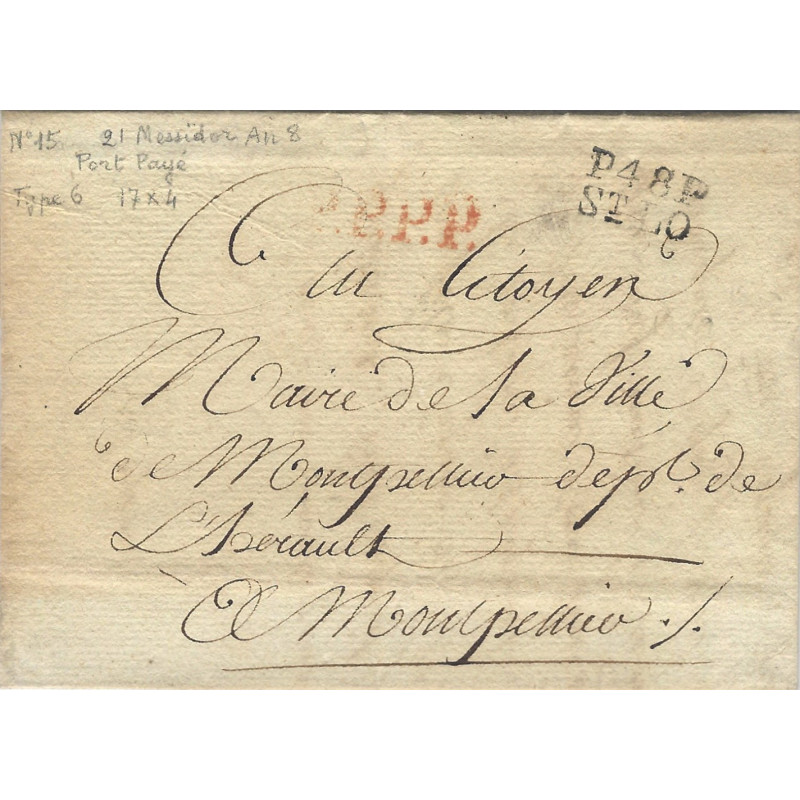 N° 15. 21 Messidor An 8
Port Payé
Type 6 17 x 4
P.P.P.
P48P
ST LO
Au Citoyen
Maire de la Ville
de Montpellier dépt. de
L'hérault
A Montpellier ./.